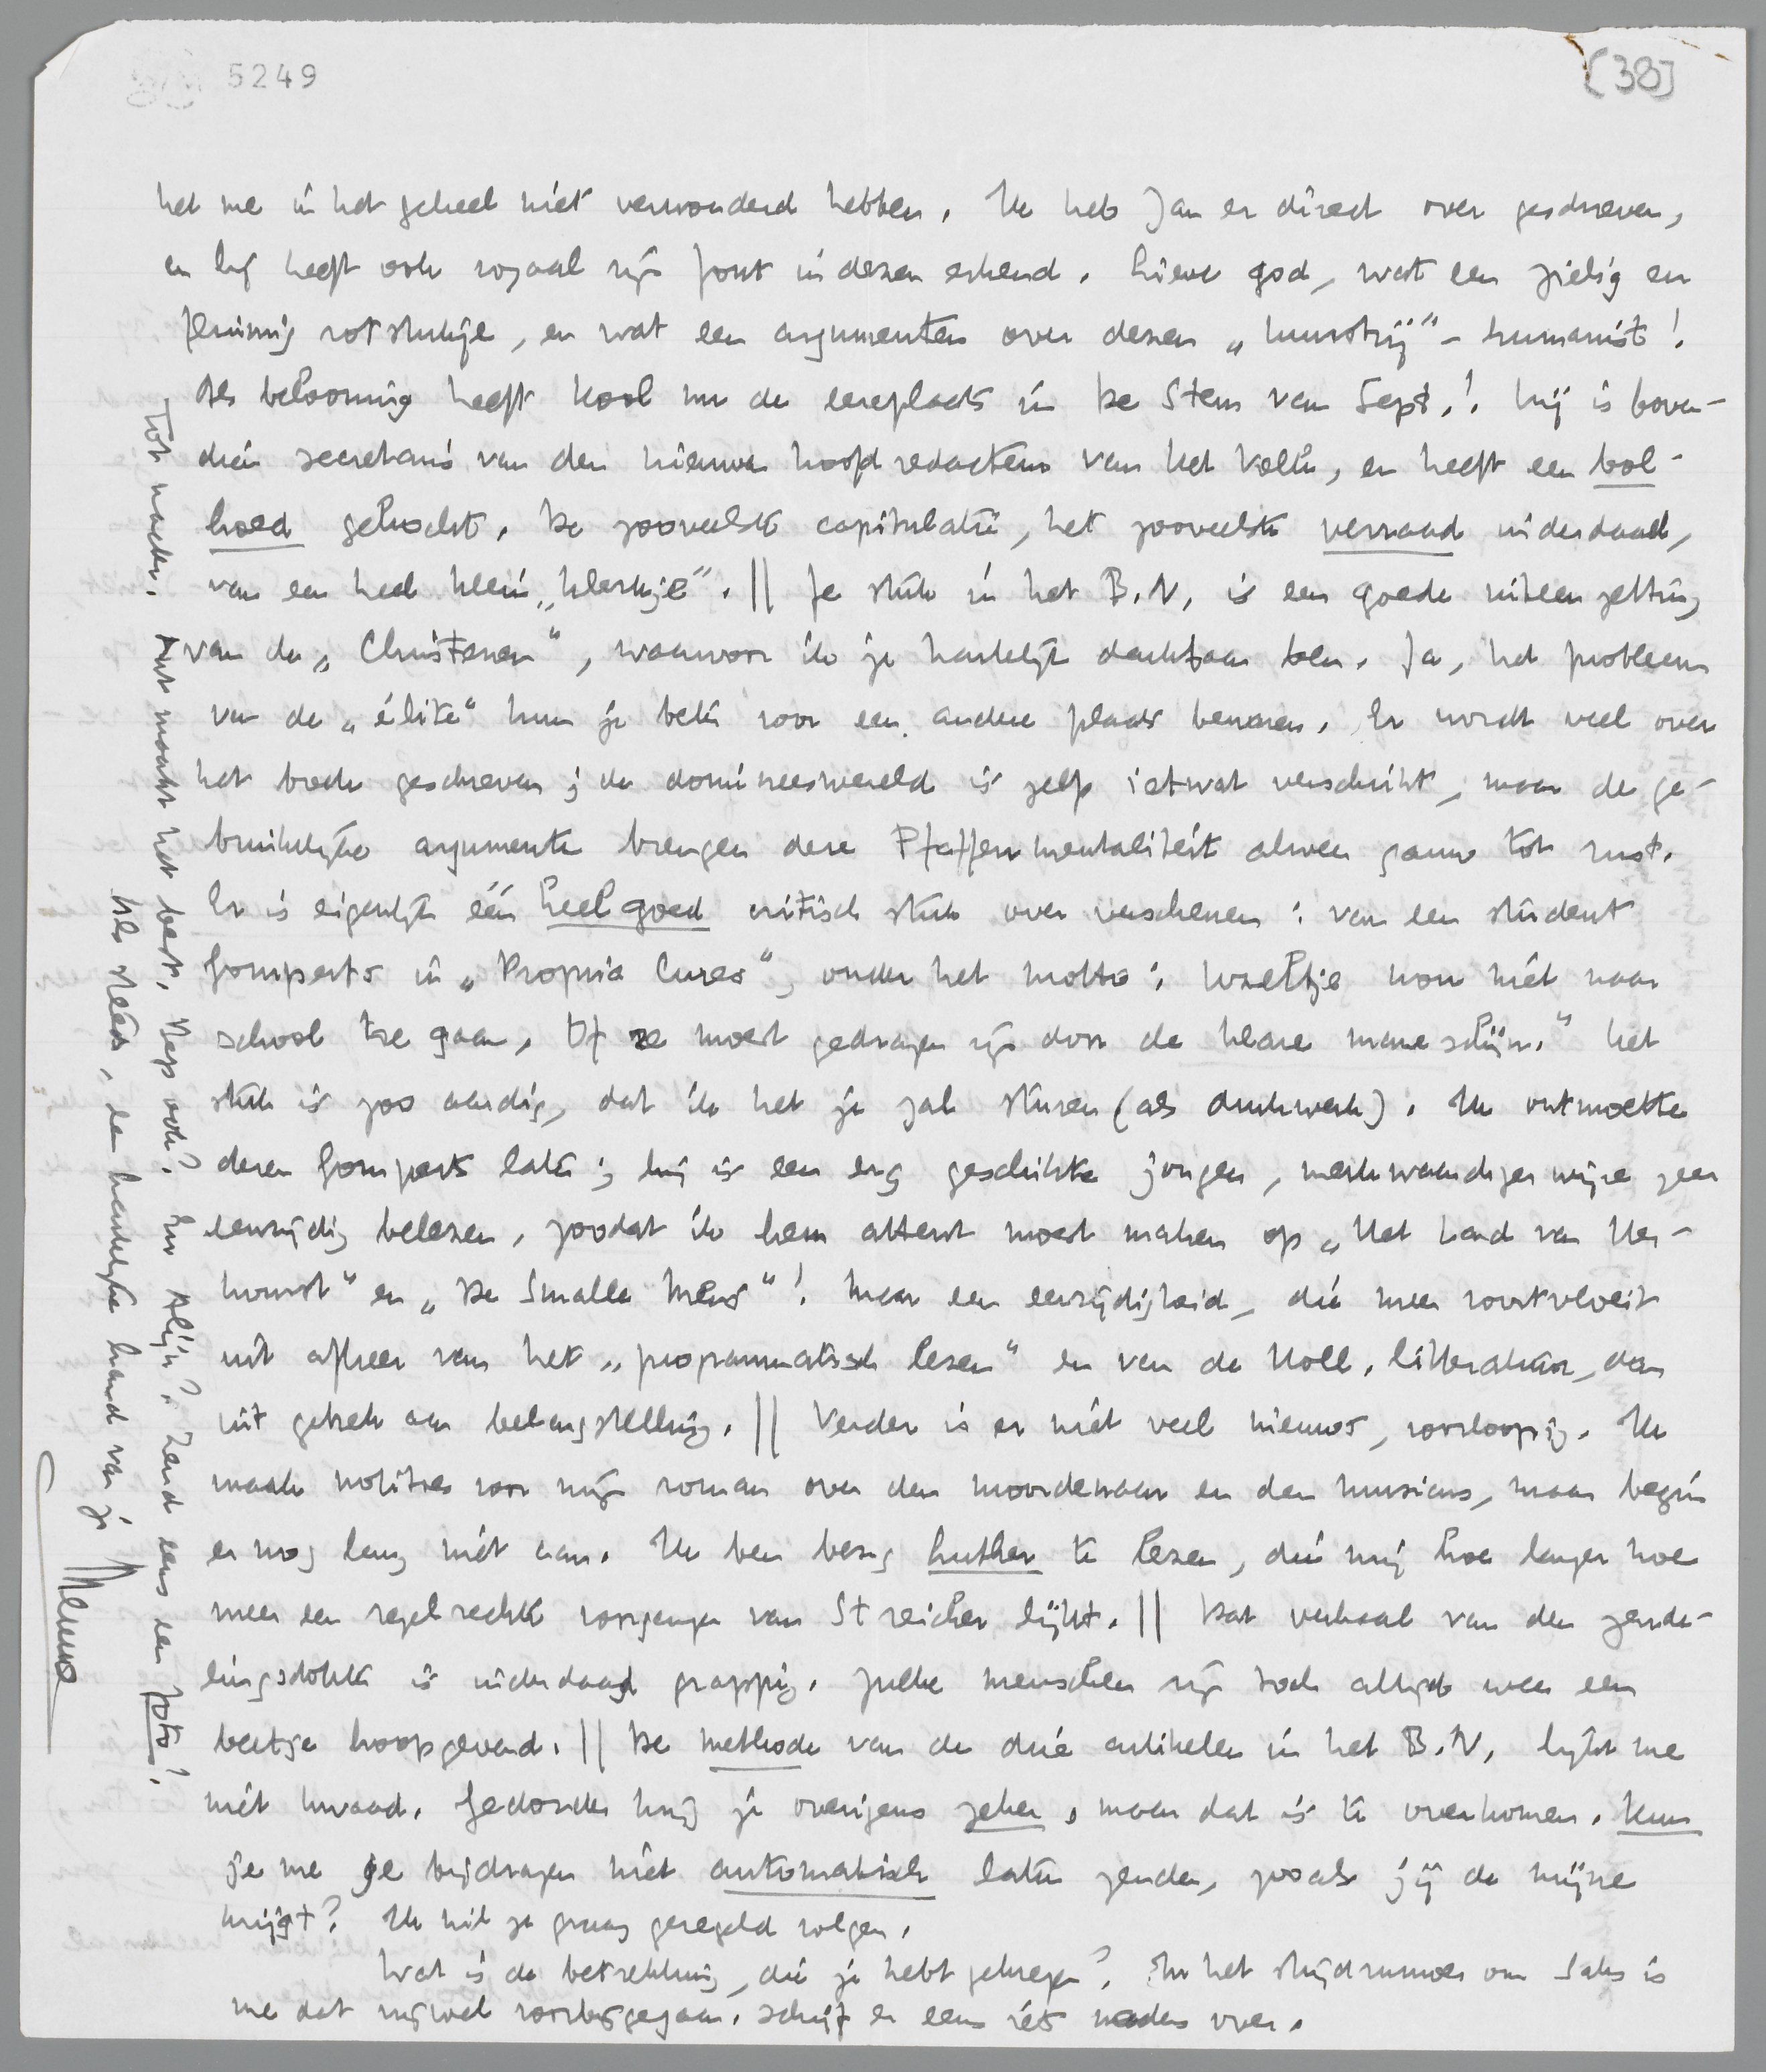 5249
[38]
het me in het geheel niet verwonderd hebben. Ik heb Jan er direct over geschreven,
en hij heeft ook royaal zijn fout in dezen erkend. Lieve god, wat een zielig en
pruimig rotstukje, en wat een argumenten over dezen „kunstzij"-humanist!
Als belooning heeft Kool nu de eereplaats in De Stem van Sept.! Hij is boven-
dien secretaris van den nieuwen hoofdredacteur van Het Volk, en heeft een bol-
hoed gekocht. De zooveelste capitulatie, het zooveelste verraad inderdaad,
van een heel klein „klerkje". || Je stuk in het B.N. is een goede uiteenzetting
van de „Christenen", waarvoor ik je hartelijk dankbaar ben. Ja, het probleem
van de „élite" kun je beter voor een andere plaats bewaren. Er wordt veel over
het boek geschreven; de domineeswereld is zelf ietwat verschrikt, maar de ge-
bruikelijke argumenten brengen deze Pfaffenmentaliteit alweer gauw tot rust.
Er is eigenlijk één heel goed critisch stuk over verschenen: van een student
Gomperts in „Propria Cures", onder het motto: Wzeltje wou niet naar
school toe gaan, Of ze moest gedragen zijn door de klare maneschijn." Het
stuk is zoo aardig, dat ik het je zal sturen (als drukwerk). Ik ontmoette
dezen Gomperts later; hij is een erg geschikte jongen, merkwaardigerwijze zeer
eenzijdig belezen, zoodat ik hem attent moest maken op „Het Land van Her-
komst" en „De Smalle Mens"! Maar een eenzijdigheid, die meer voortvloeit
uit afkeer van het „programmatisch lezen" en van de Holl. litteratuur, dan
uit gebrek aan belangstelling. || Verder is er niet veel nieuws, voorloopig. Ik
maak notities voor mijn roman over den moordenaar en den musicus, maar begin
er nog lang niet aan. Ik ben bezig Luther te lezen, die mij hoe langer hoe
meer een regelrechte voorganger van Streicher lijkt. || Dat verhaal van den zende-
lingsdokter is inderdaad grappig. Zulke menschen zijn toch altijd weer een
beetje hoopgevend. || De methode van de drie artikelen in het B.N. lijkt me
niet kwaad. Gedonder krijg je overigens zeker, maar dat is te overkomen. Kun
je me je bijdragen niet automatisch laten zenden, zooals jij de mijne
krijgt? Ik wil ze graag geregeld volgen.
Wat is de betrekking, die je hebt gekregen? In het strijdrumoer om Saks is
me dat nijwel voorbijgegaan. Schrijf er eens iets nader over.
Tot nader. Ant maakt het best. Bep ook? En Alijn? Zend eens een foto!
Als steeds, een hartelijke hand van je
Menno